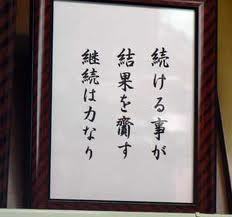 続ける事が
結果を齎す
継続は力なり